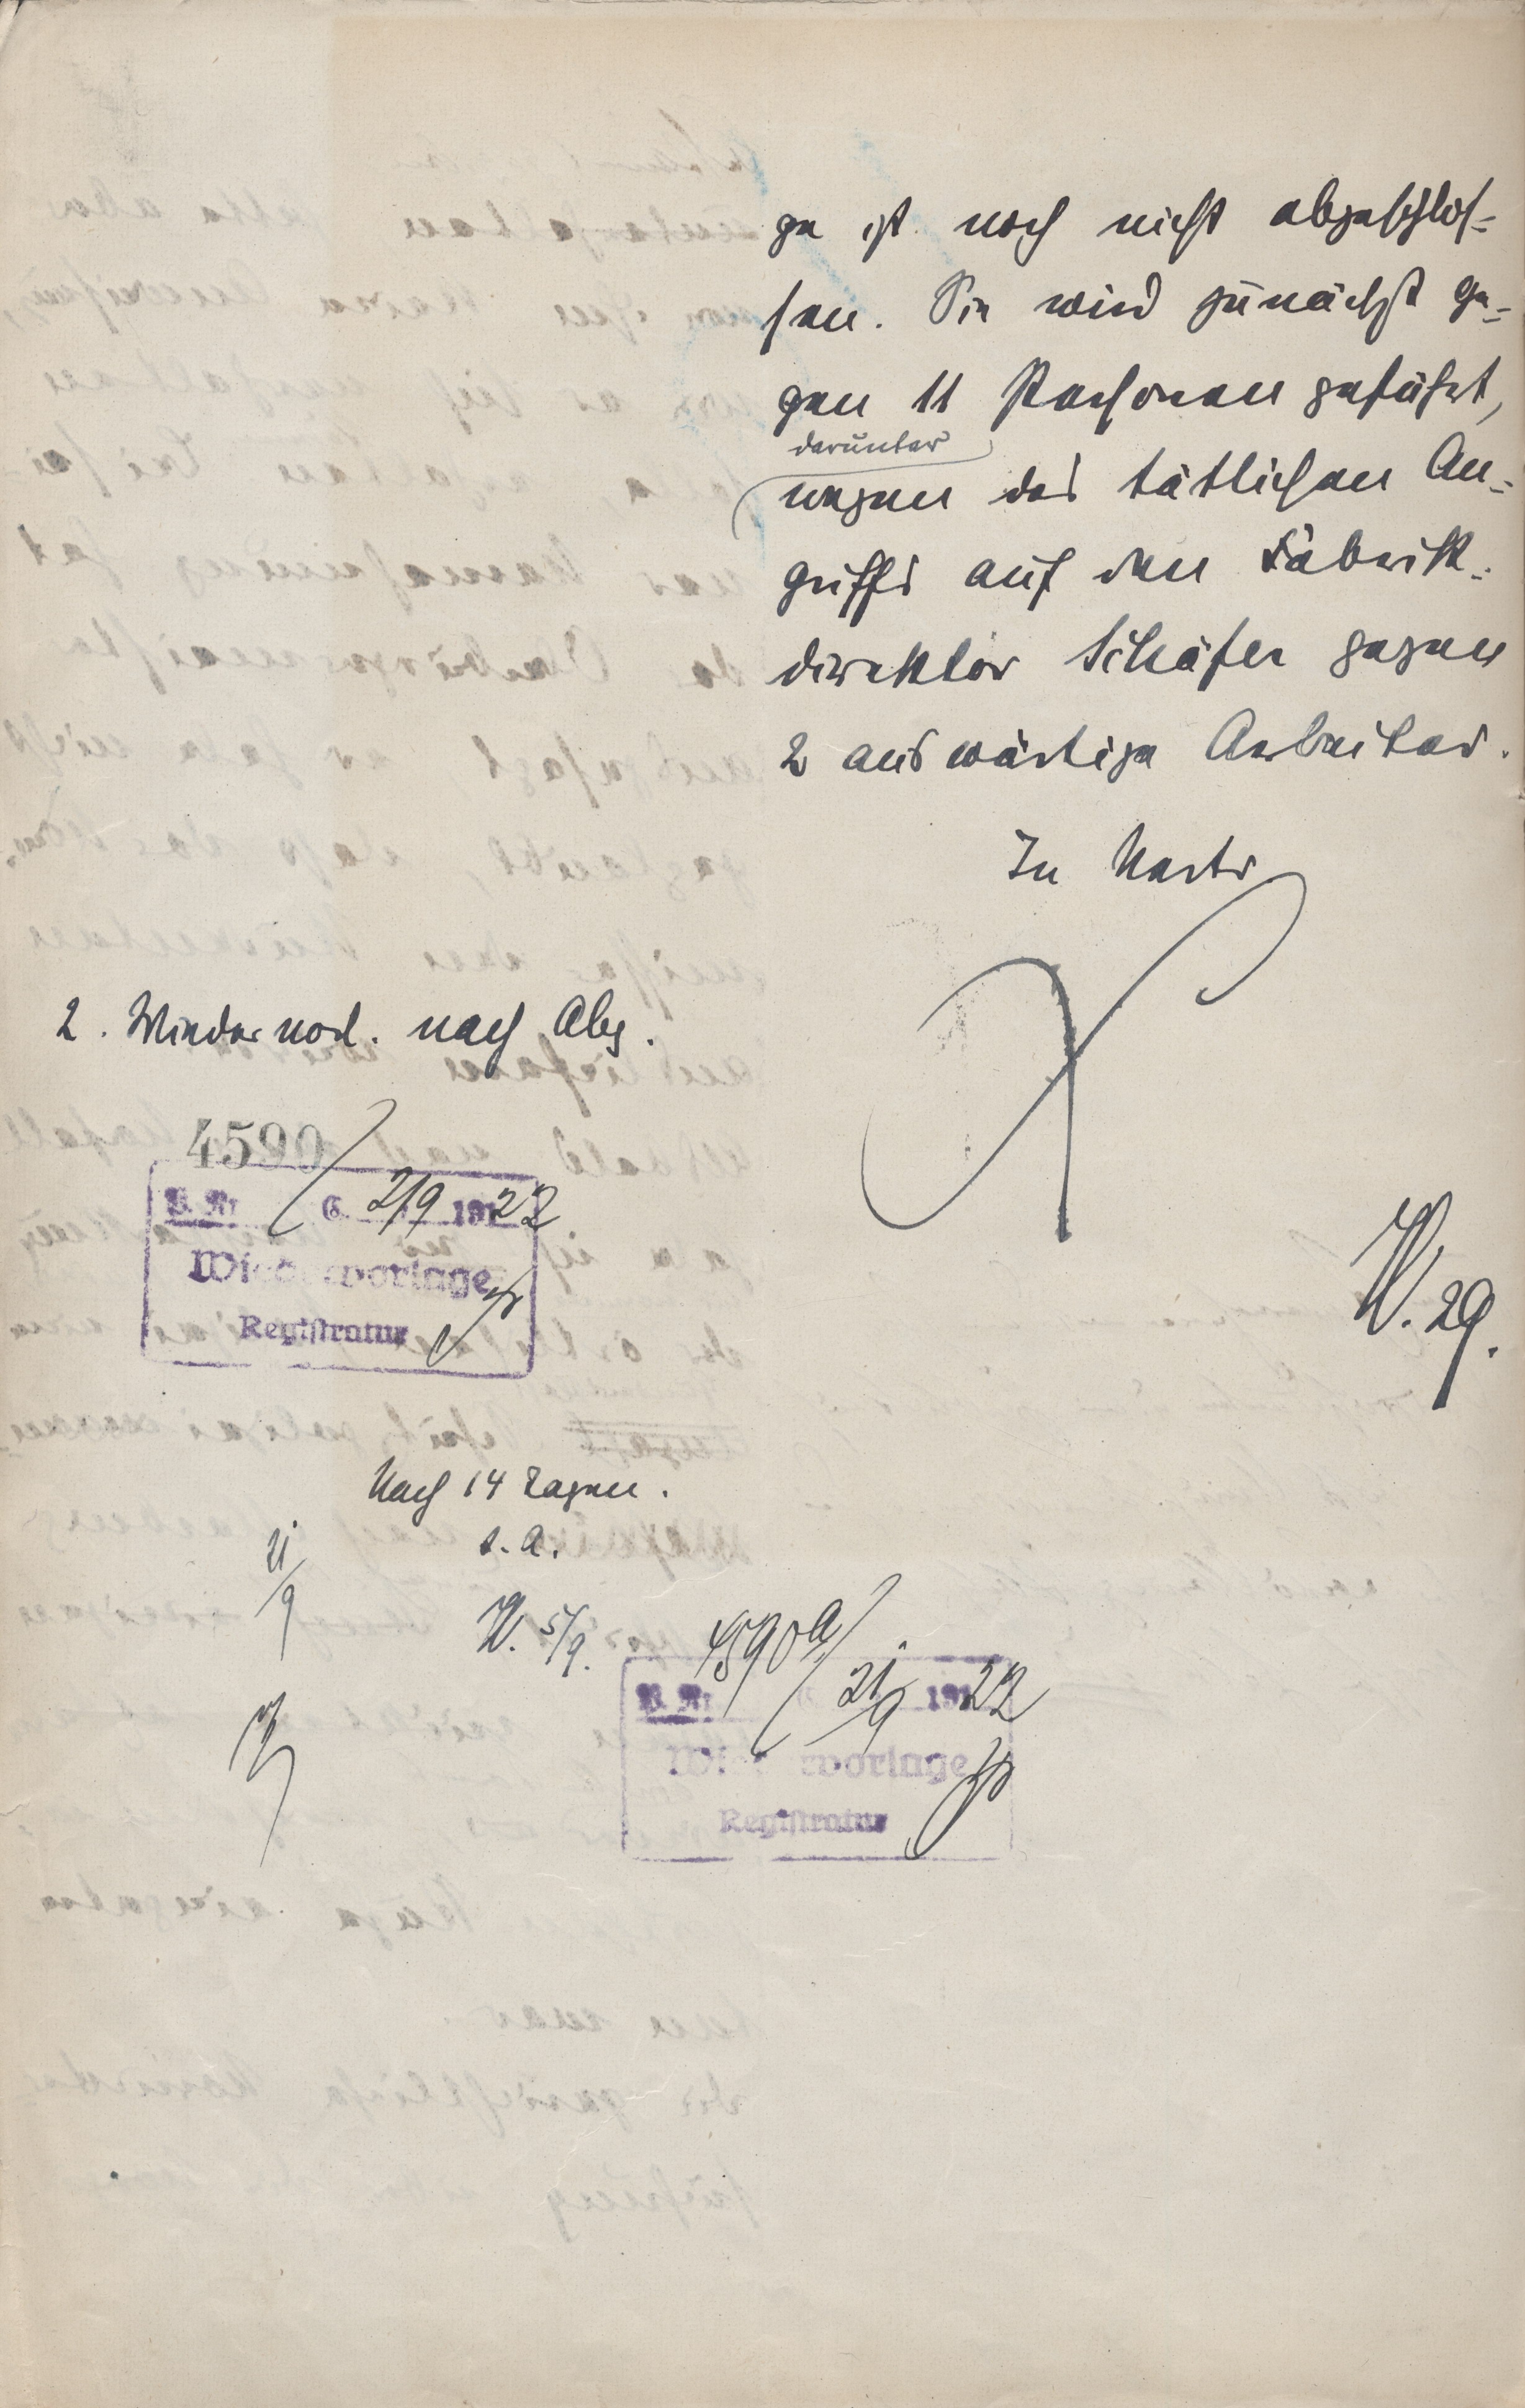 ge ist noch nicht abgeschlos-
sen. Sie wird zunächst ge-
gen 11 Personen geführt,
darunter
wegen des tätlichen An-
griffs auf den Fabrik-
direktor Schäfer gegen
2 auswärtige Arbeiter.
In Vertr
2. Wiedervorl. nach Abg.
4590
B. Nr. G. 2/9 1922
Wiedervorlage
Registratur
W. 29.
Nach 14 Tagen.
s. a.
21/9
W. 5/9.
4590a
B. Nr. 21/9 1922
Wiedervorlage
Registratur